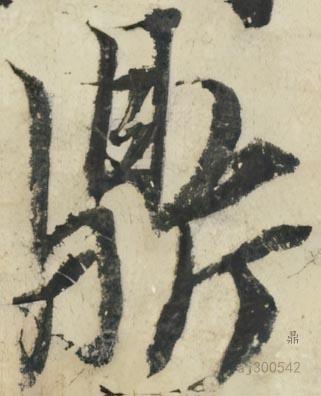 鼎
鼎
aj300542